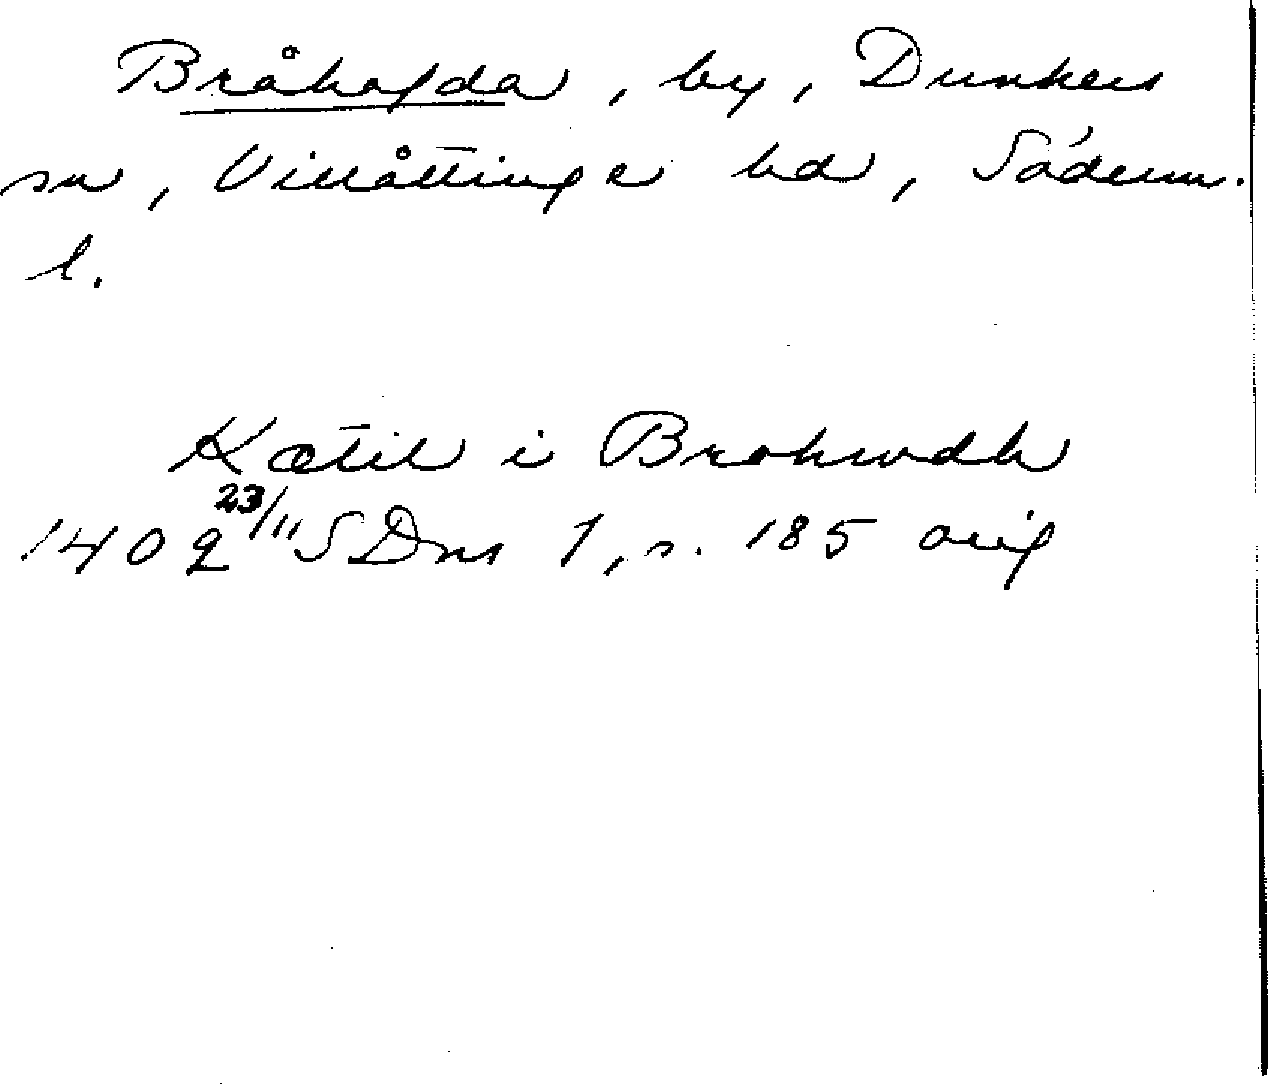 Bråhovda, by, Dunkers
sn, Villåttinge hd, Söderm.
l.
Kætil i Brohwdh
1402 23/11 SDns 1, s. 185 orig